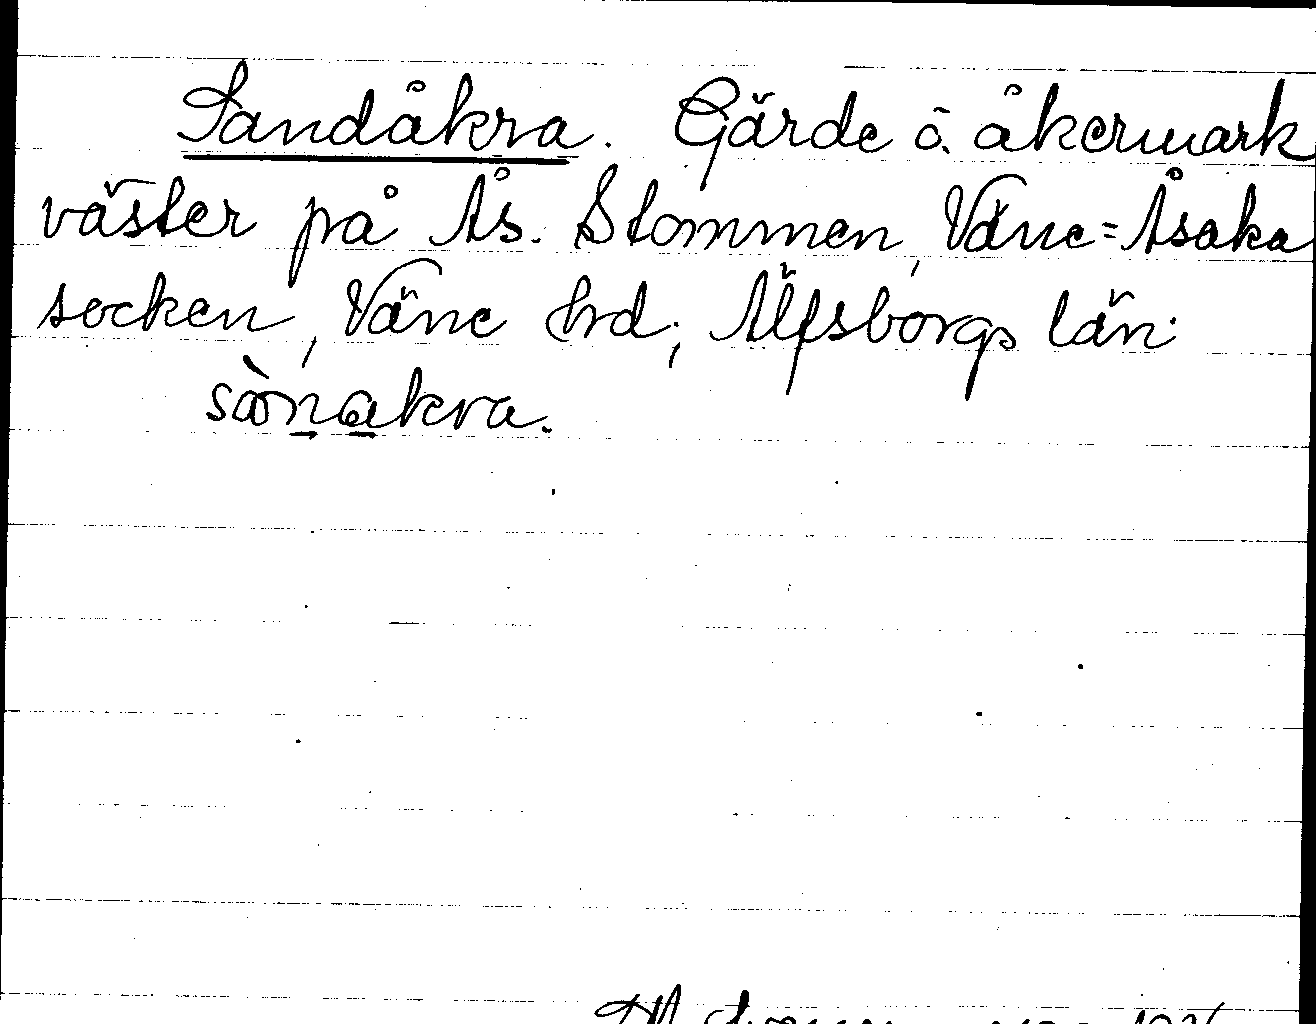 Sandåkra. Gärde å åkermark
väster på Ås. Stommen, Väne=Åsaka
socken, Väne hrd, Älfsborgs län.